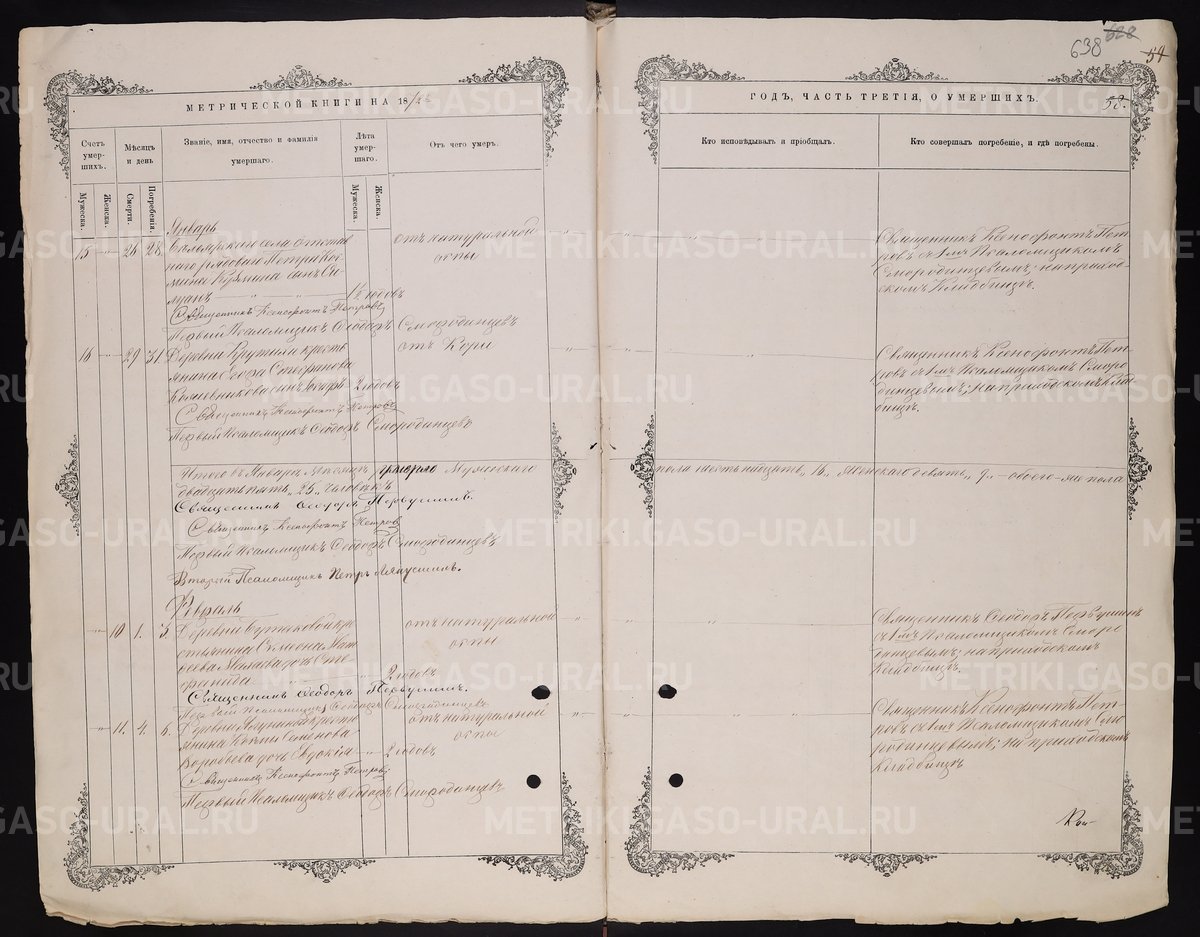 638
54
58.
МЕТРИЧЕСКОЙ КНИГИ НА 18
ГОДЪ, ЧАСТЬ ТРЕТІЯ, О УМЕРШИХЪ.
Счетъ умер-
шихъ.
Мужеска.
Женска.
Мѣсяцъ
и день
Смерти.
Погребенія.
Званіе, имя, отчество и фамилія
умершаго.
Лѣта
умер-
шаго.
Мужеска.
Женска.
Отъ чего умеръ.
Кто исповѣдывалъ и пріобщалъ.
Кто совершалъ погребеніе, и гдѣ погребены.
Январь
15 26 28 села отстав
наго рядоваго Петра Коз
мина сынъ Си
луанъ 1/2 годовъ
отъ натуральной
оспы
Священникъ Ксенофонтъ Пет
ровъ съ 1мъ Псаломщикомъ
Смородинцевымъ; на приход-
скомъ кладбищѣ.
Священникъ Ксенофонтъ Петровъ
Первый Псаломщикъ Ѳеодоръ Смородинцевъ
16 29 31 Деревни кресть
янина Стефанова
сынъ 2 годовъ
отъ Кори
Священникъ Ксенофонтъ Пет
ровъ съ 1мъ Псаломщикомъ Сморо
динцевымъ; на приходскомъ кла
бищѣ.
Священникъ Ксенофонтъ Петровъ
Первый Псаломщикъ Ѳеодоръ Смородинцевъ
Итого въ Январѣ мѣсяцѣ умерло Мужескаго
пола шестьнадцать, 16, женскаго девять, 9, обоего-же пола
двадцать пять „25„ человѣкъ
Священникъ Ѳеодоръ Первушинъ.
Священникъ Ксенофонтъ Петровъ
Первый Псаломщикъ Ѳеодоръ Смородинцевъ
Второй Псаломщикъ Петръ
Февраль
10 1. 3. Деревни кре
стьянина Симеона Мат
ѳеева дочь Сте
фанида 2 годовъ
отъ натуральной
оспы
Священникъ Ѳеодоръ Первушинъ
съ 1мъ Псаломщикомъ Сморо
динцевымъ; на приходскомъ
кладбищѣ.
Священникъ Ѳеодоръ Первушинъ.
Первый Псаломщикъ Ѳеодоръ Смородинцевъ
11. 4. 6. Деревни кресть
янина Семенова
Воробьева дочь Евдокія 2 годовъ
отъ натуральной
оспы
Священникъ Ксенофонтъ Пет-
ровъ съ 1мъ Псаломщикомъ Смо
родинцевымъ; на приходскомъ
кладбищѣ
Священникъ Ксенофонтъ Петровъ
Первый Псаломщикъ Ѳеодоръ Смородинцевъ
METRIKI.GASO-URAL.RU